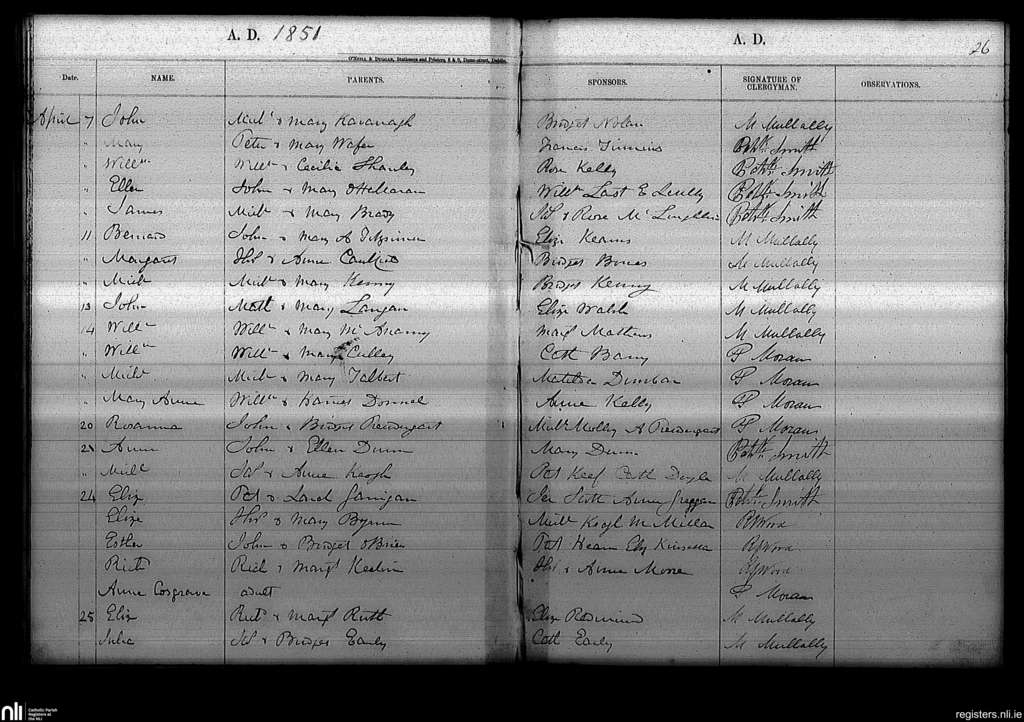 A. D. 1851
A. D.
26
O'Neill & Duggan, Stationers and Printers, Dame-street, Dublin.
Date. NAME. PARENTS. SPONSORS. SIGNATURE OF CLERGYMAN. OBSERVATIONS.
April 7 John Michl & Mary Kavanagh Bridget Nolan M Mullally
" Mary Peter & Mary Wafer Francis Patk Smith
" Willm Willm & Cecilia Rose Kelly Patk Smith
" Ellen John & Mary Willm Last E Patk Smith
" James Michl & Mary Brady & Rose McLoughlin Patk Smith
11 Bernard John & Mary A Fitzsimon Eliza Kearns M Mullally
" Margaret Thos & Anne Bridget M Mullally
" Michl Michl & Mary Kenny Bridget Kenny M Mullally
13 John Matt & Mary Langan Eliza Walsh M Mullally
14 Willm Willm & Mary Margt Mathews M Mullally
" Willm Willm & Mary Culley Cath Barry P Moran
" Michl Michl & Mary Talbert Matilda Dunbar P Moran
" Mary Anne Willm & Donnel Anne Kelly P Moran
20 Rosanna John & Bridget Prendergast Michl Molly A Prendergast P Moran
21 Anne John & Ellen Dunn Mary Dunn Patk Smith
" Michl & Anne Keogh Pat Keef Cath Doyle M Mullally
24 Eliza Pat & Garrigan Scott Anne Patk Smith
Eliza Thos & Mary Byrne Michl Keogh M Millar RJ Wood
Esther John & Bridget O'Brien Pat Hearn Eliz Kinsella RJ Wood
Richd Rich & Margt Thos & Anne Moore RJ Wood
Anne Cosgrave adult P Moran
25 Eliza & Margt Ruth Eliza Redmond M Mullally
Julia & Bridget Early Cath Early M Mullally
nli Catholic Parish Registers at the NLI
registers.nli.ie